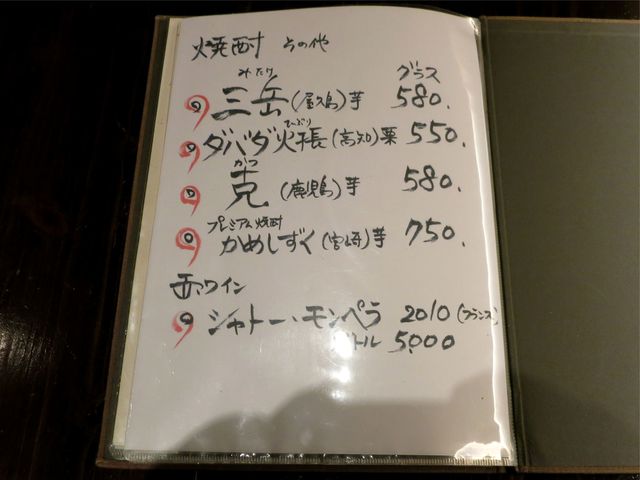 焼酎 その他
グラス
みたけ
三岳(屋久島)芋 580.
ひぶり
ダバダ火振(高知)栗 550.
かつ
克(鹿児島)芋 580.
プレミアム焼酎
かめしずく(宮崎)芋 750.
赤ワイン
シャトー・モンペラ 2010(フランス)
ボトル 5,000